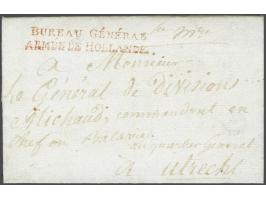 BUREAU GÉNÉRAL
ARMÉE DE HOLLANDE.
A Monsieur
Le Général de Division
Michaud, commandant en
chef en Batavie
au quartier Général
A Utrecht